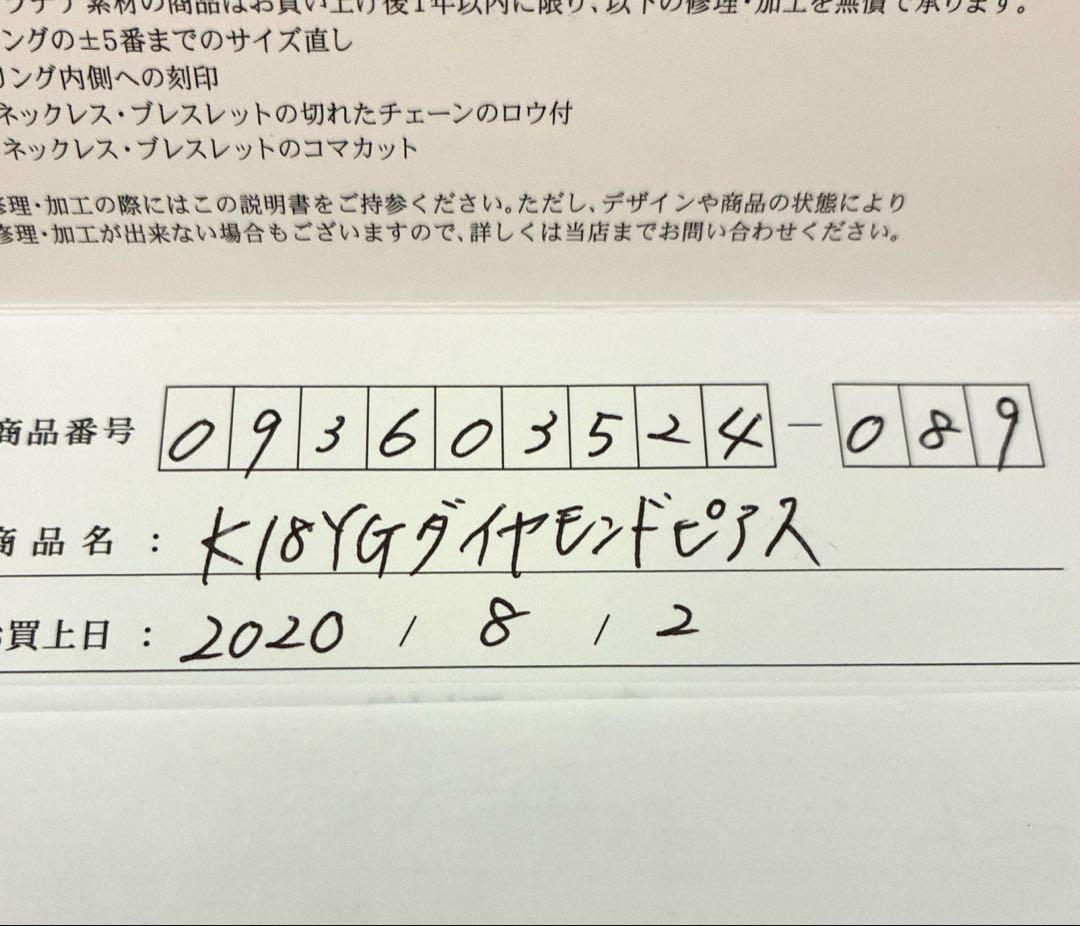 プラチナ素材の商品はお買い上げ後1年以内に限り、以下の修理・加工を無償で承ります。
ングの±5番までのサイズ直し
リング内側への刻印
ネックレス・ブレスレットの切れたチェーンのロウ付
ネックレス・ブレスレットのコマカット
修理・加工の際にはこの説明書をご持参ください。ただし、デザインや商品の状態により
修理・加工が出来ない場合もございますので、詳しくは当店までお問い合わせください。
商品番号 093603524-089
商品名：K18YGダイヤモンドピアス
お買上日：2020 / 8 / 2